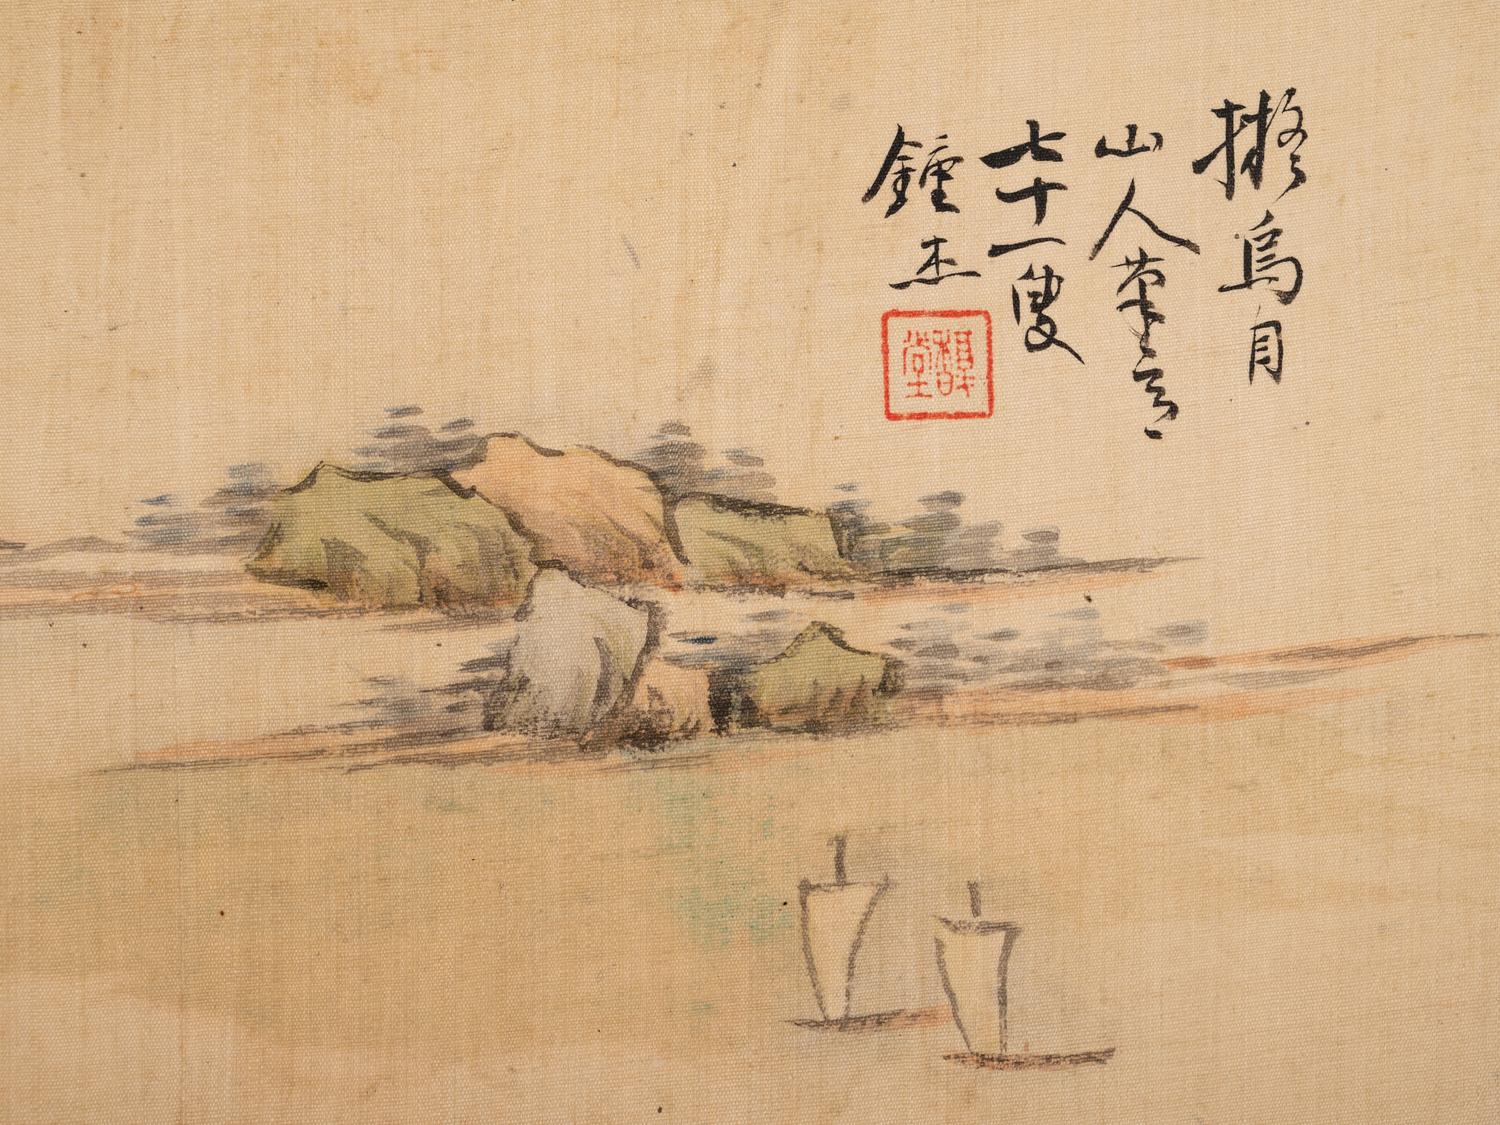 擬烏目
山人筆意
七十一叟
鍾杰
馥堂